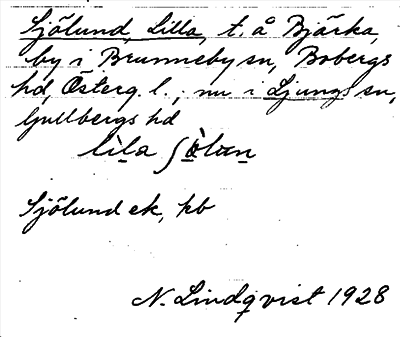 Sjölund, Lilla, t. å Bjärka,
by i Brunneby sn, Bobergs
hd, Österg. l., nu i Ljungs sn,
Gullbergs hd
lìla ʃọ̀lun̥
Sjölund ek, kb
N. Lindqvist 1928